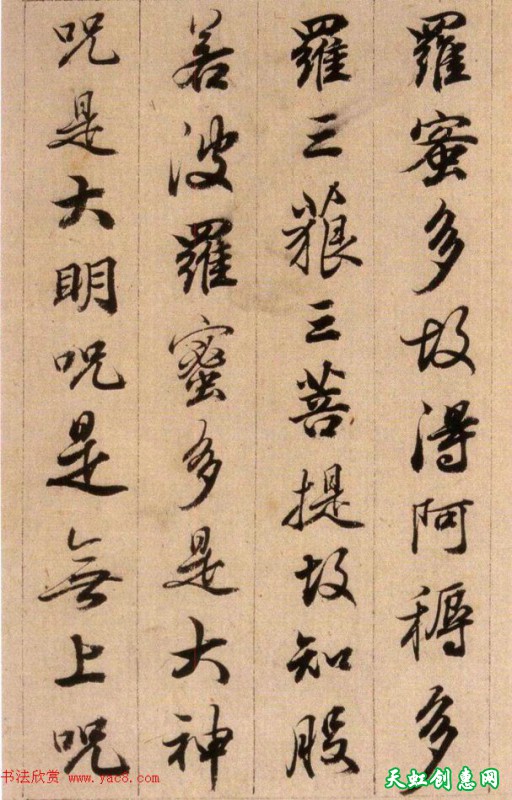 羅蜜多故得阿耨多
羅三藐三菩提故知般
若波羅蜜多是大神
呪是大明呪是無上呪
书法欣赏 www.yac8.com
天虹创惠网